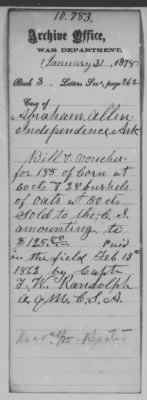 10.783.
Archive Office,
WAR DEPARTMENT,
January 31, 1875.
Book 3 Letters Sen, page 262
Case of
Abraham Allen
Independence Ark
Bill & voucher
for 138 of Corn at
60 cts & 28 bushels
of oats at 50 cts
Sold to the C. S.
amounting to
$125.60 Paid
in the field Feb 13th
1862 by Capt
J. W. Randolph
A Q M. C. S. A.